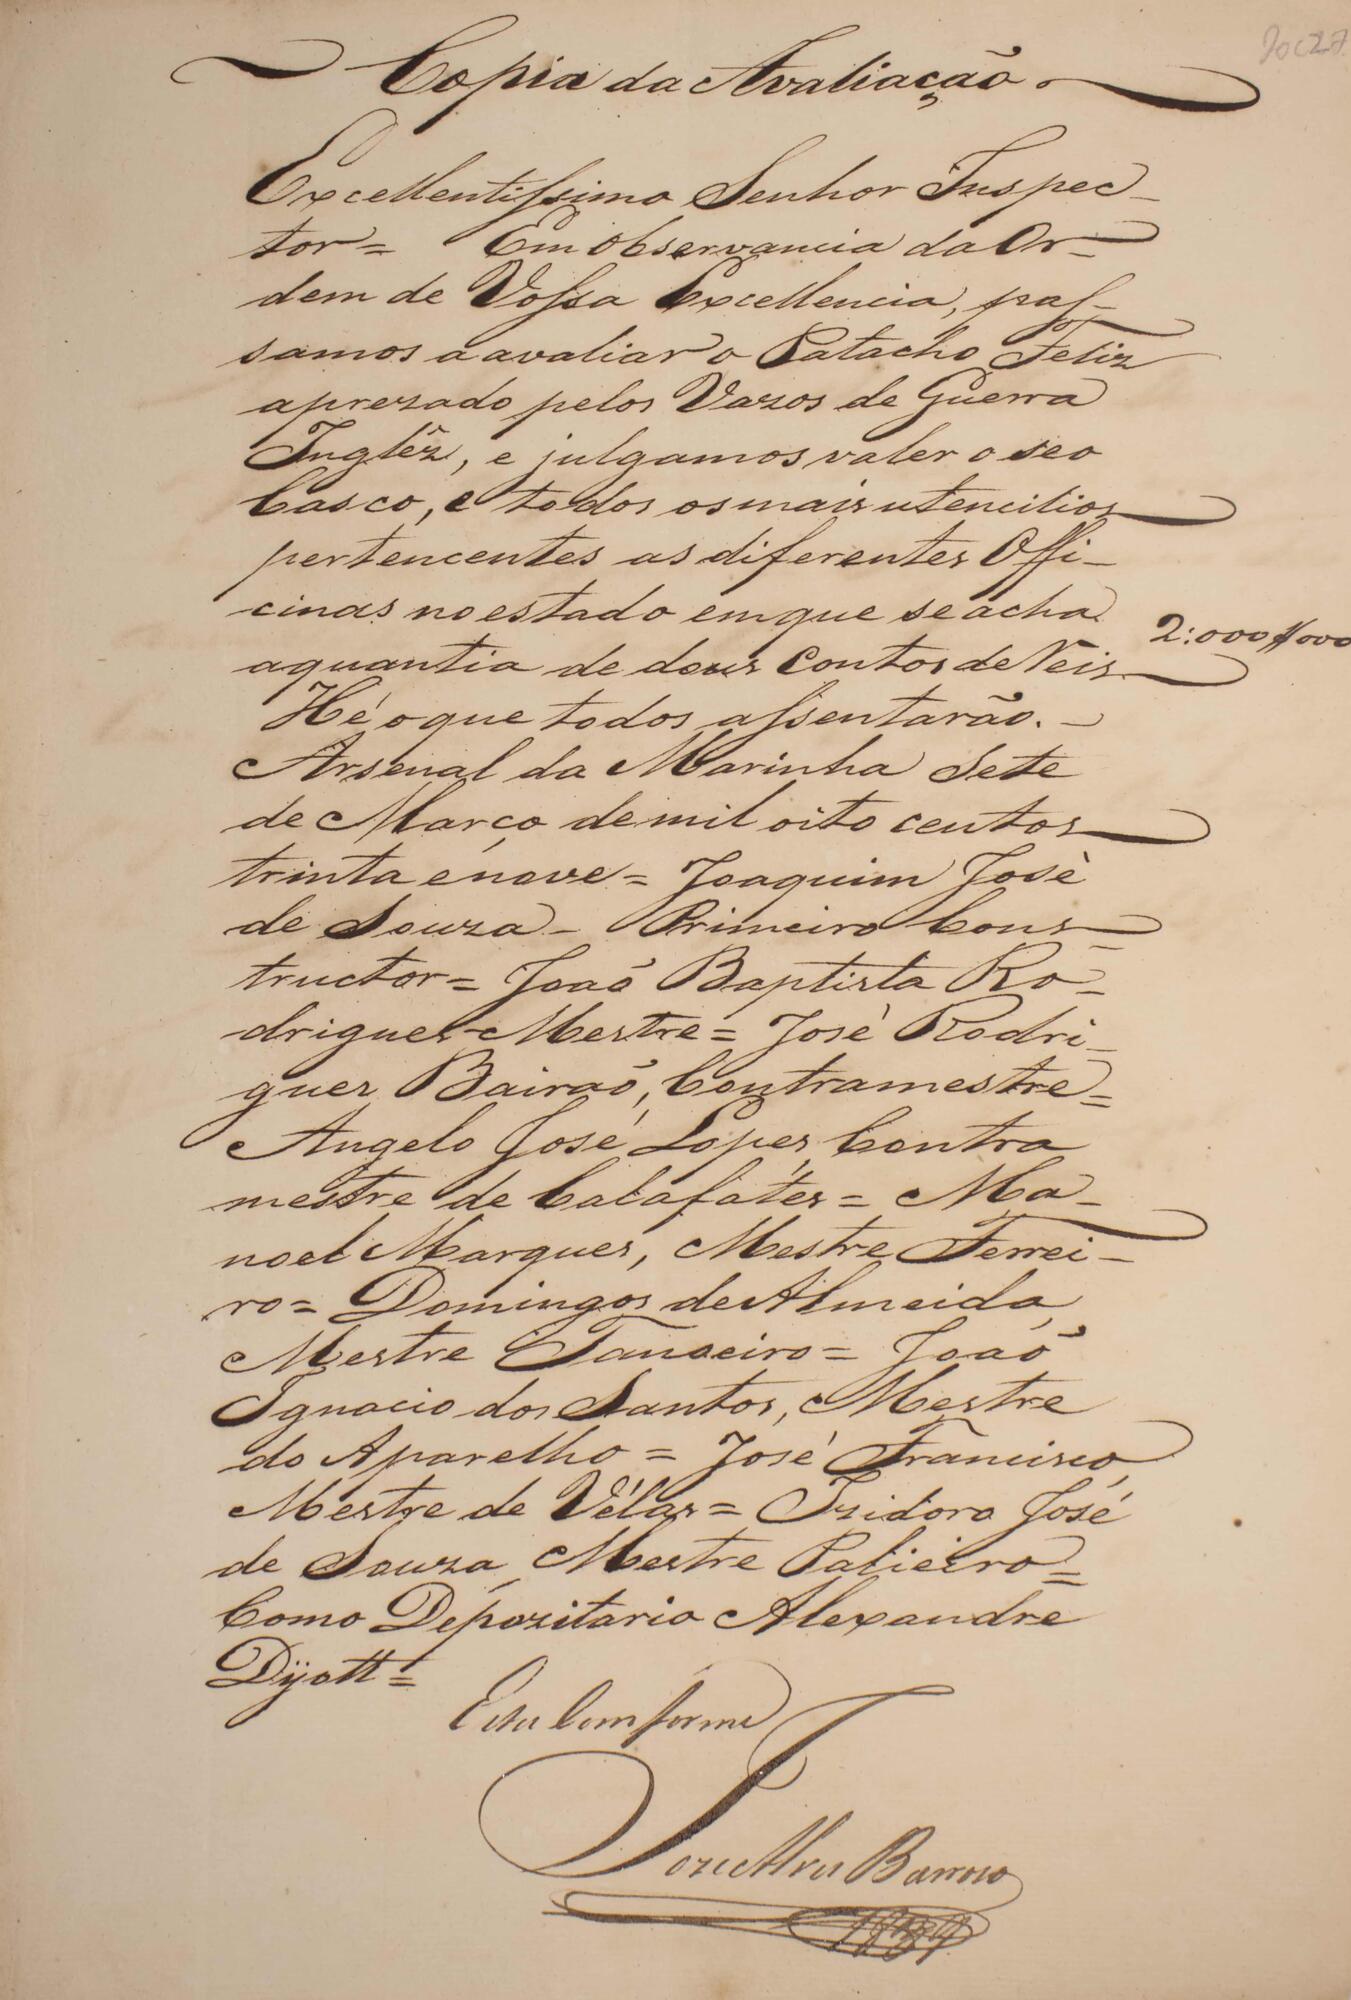 Doc 27
Copia da Avaliação
Excellentissimo Senhor Inspec-
tor= Em observancia da Or-
dem de Vossa Excellencia, pas-
samos a avaliar o Patacho Feliz
aprezado pelos Vazos de Guerra
Inglêz, e julgamos valer o seo
Casco, e todos os mais utencilios
pertencentes as diferentes Offi-
cinas no estado em que se acha
a quantia de dous Contos de Reis
2:000$000
Hé o que todos assentarão.-
Arsenal da Marinha Sete
de Março de mil oito centos
trinta e nove= Joaquim José
de Souza- Primeiro Cons-
tructor= João Baptista Ro-
drigues Mestre= José Rodri-
gues Bairaõ, Contramestre=
Angelo José Lopes, Contra
mestre de Calafátes= Ma-
noel Marques, Mestre Ferrei-
ro= Domingos de Almeida,
Mestre Tanoeiro= Joaõ
Ignacio dos Santos, Mestre
do Aparelho= José Francisco,
Mestre de Vélas= Izidoro José
de Souza, Mestre Polieiro=
Como Depozitario Alexandre
Dÿott=
Está Comforme
Joze Alves Barrozo